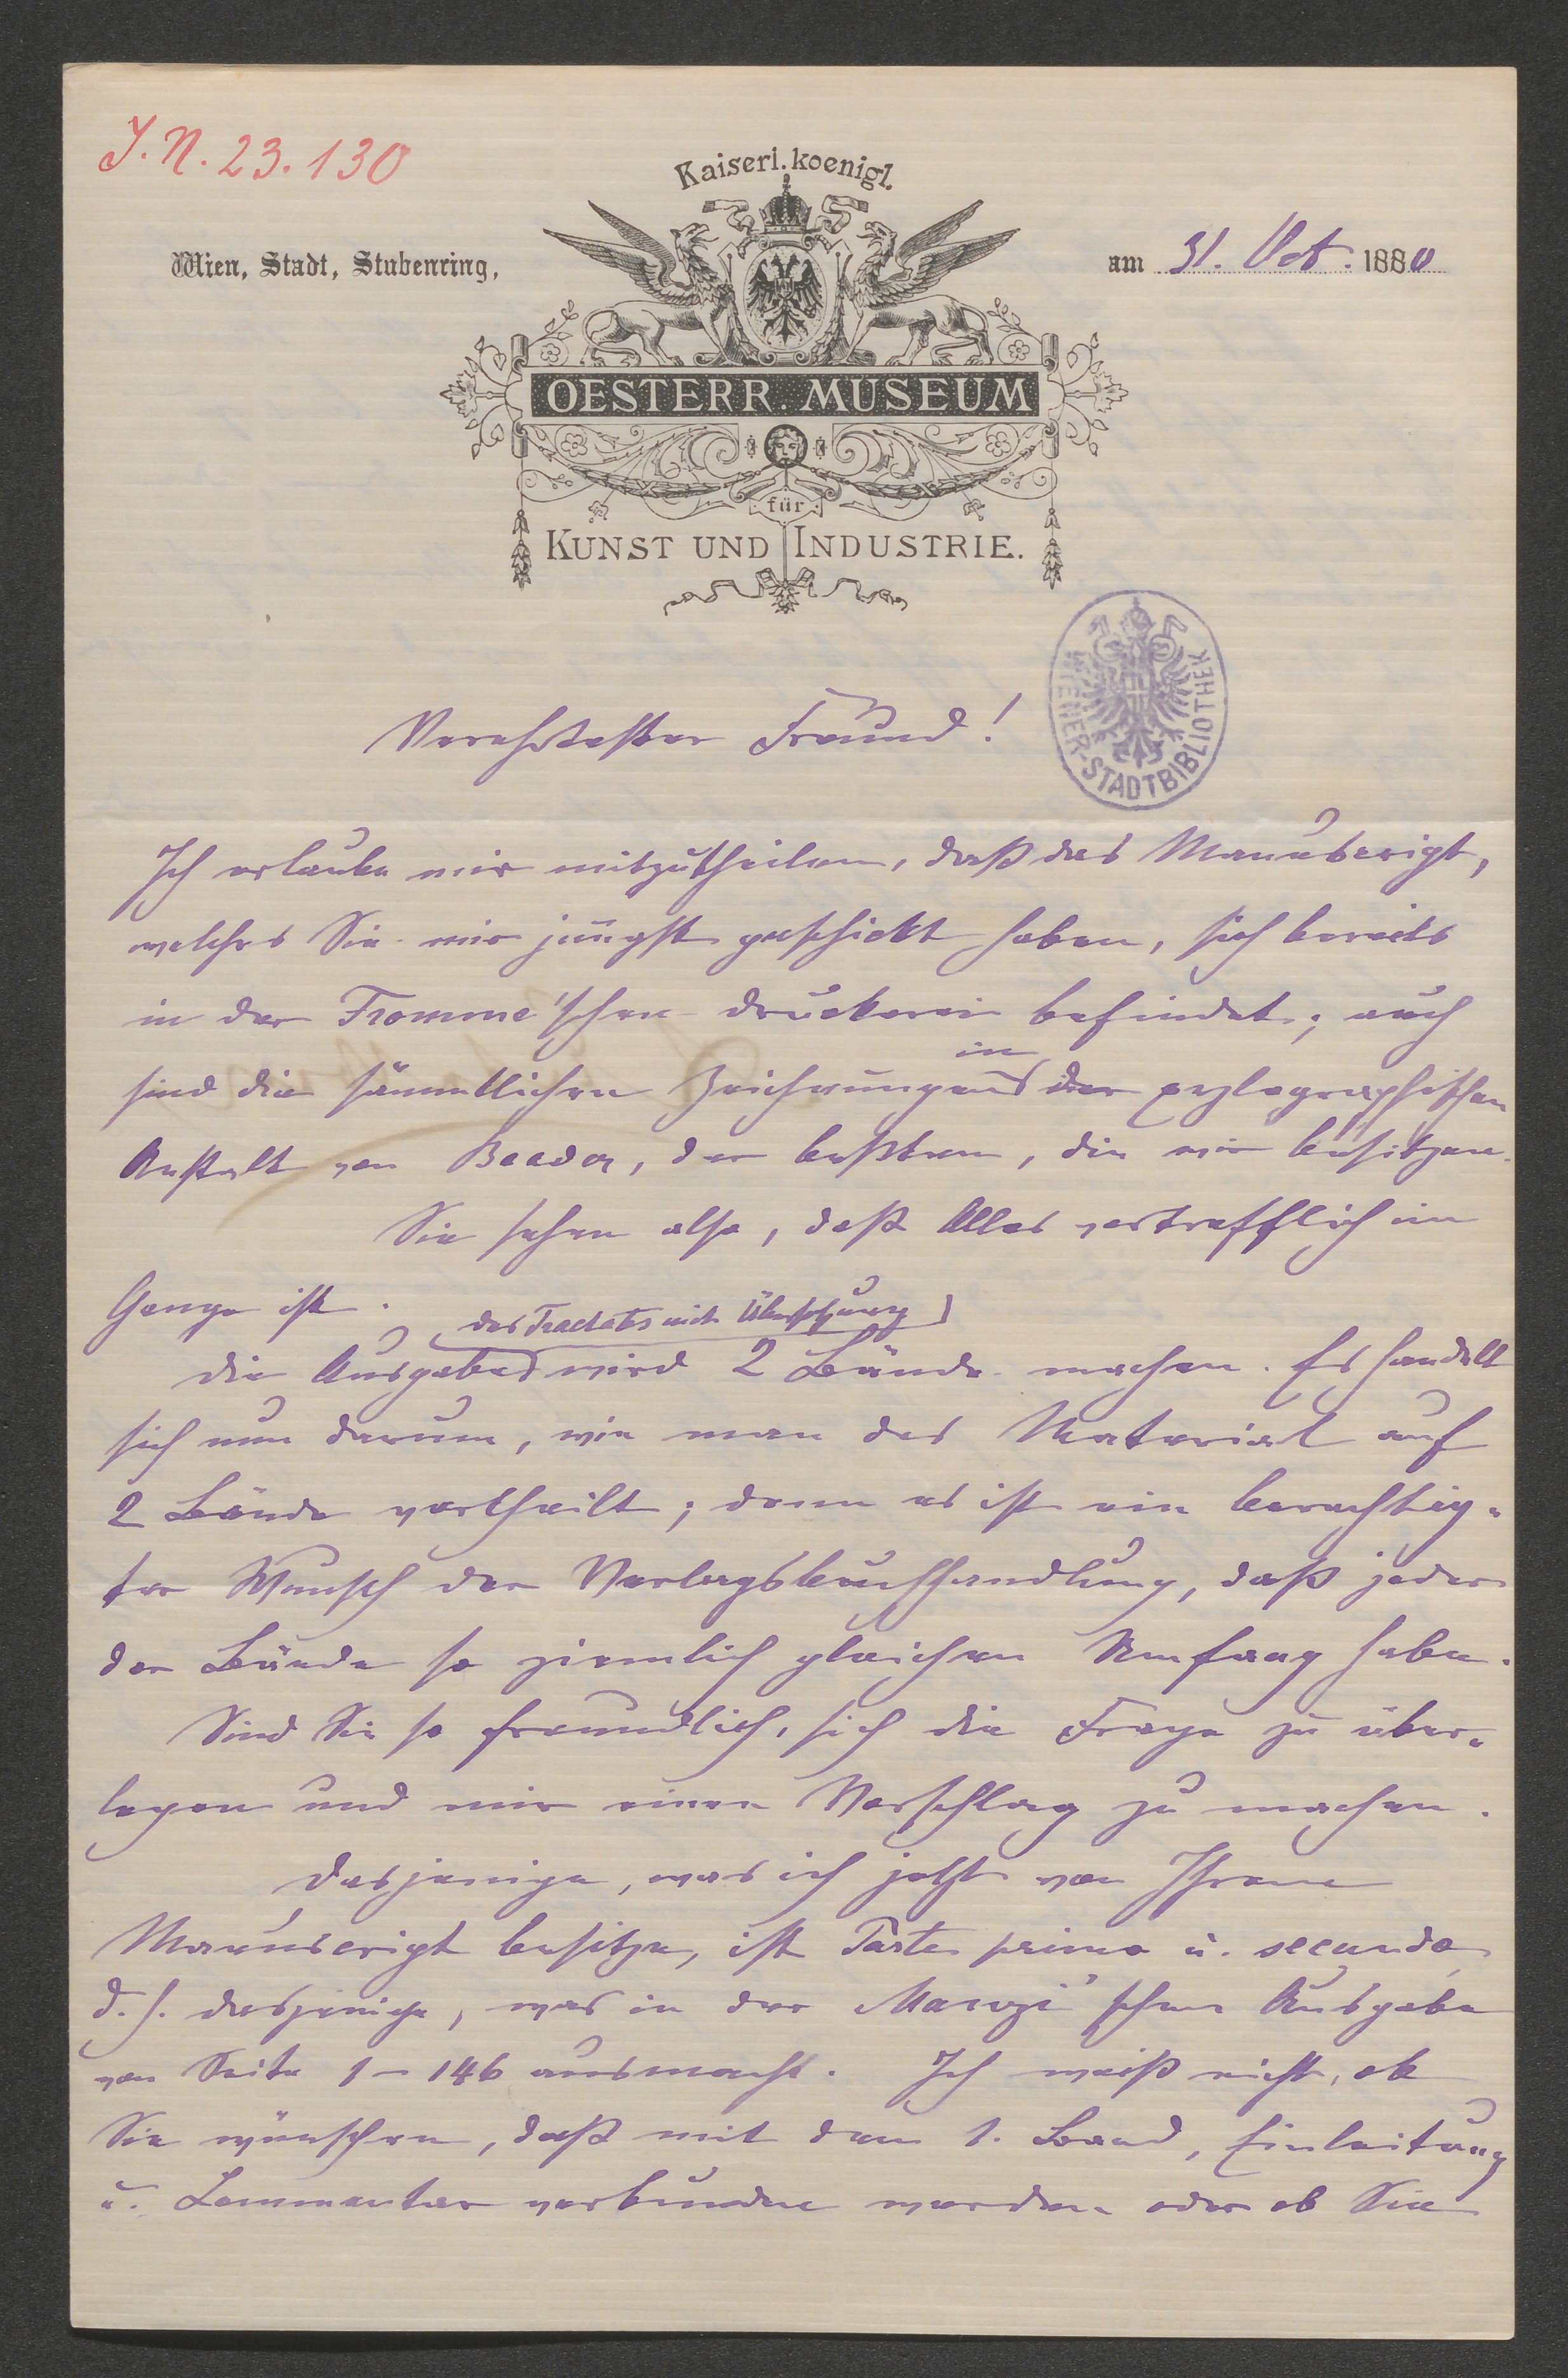 J. N. 23.130
Kaiserl. koenigl.
Wien, Stadt, Stubenring,
am 31. Oct. 1880
OESTERR. MUSEUM
für
KUNST UND INDUSTRIE.
WIENER-STADTBIBLIOTHEK
Verehrtester Freund!
Ich erlaube mir mitzutheilen, daß das Manuscript,
welches Sie mir jüngst geschickt haben, sich bereits
in der Fromme'schen Druckerei befindet; auch
in
sind die sämmtlichen Zeichnungen der xylographischen
Anstalt von Baader, der besten, die wir besitzen.
Sie sehen also, daß Alles vortrefflich im
Gange ist.
des Tractats mit Übersetzung
Die Ausgabe wird 2 Bände machen. Es handelt
sich nun darum, wie man das Material auf
2 Bände vertheilt; denn es ist ein berechtig-
ter Wunsch der Verlagsbuchhandlung, daß jeder
der Bände so ziemlich gleichen Umfang habe.
Sind Sie so freundlich, sich die Frage zu über-
legen und mir einen Vorschlag zu machen.
Dasjenige, was ich jetzt von Ihrem
Manuscript besitze, ist Parte prima u. secunda,
d. h. dasjenige, was in der Manzi'schen Ausgabe
von Seite 1–146 ausmacht. Ich weiß nicht, ob
Sie wünschen, daß mit dem 1. Band, Einleitung
u. Commentar verbunden werden oder ob Sie